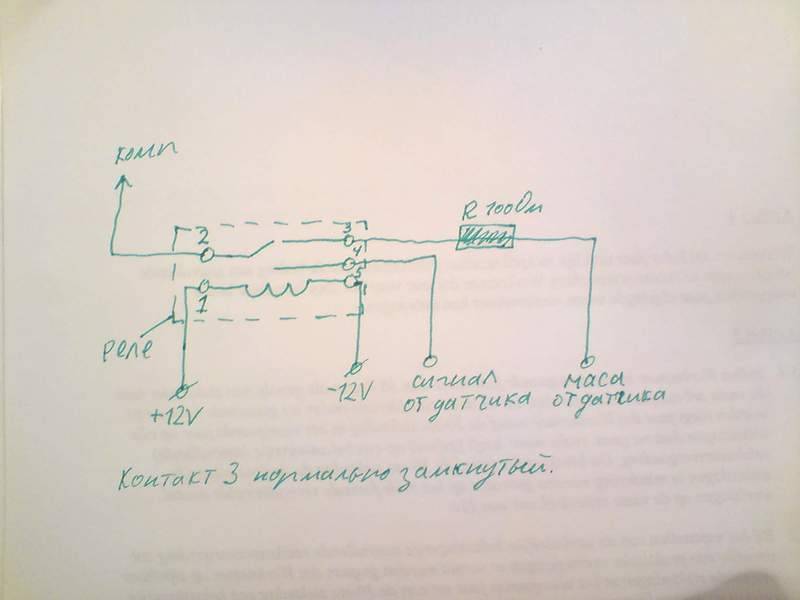 комп
R 100 Ом
2
3
4
5
1
реле
+12V
-12V
сигнал
от датчика
маса
от датчика
Контакт 3 нормально замкнутый.